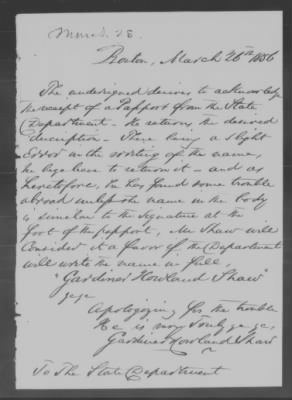 March 28.
Boston, March 26th 1886
The undersigned desires to acknowledge
the receipt of a Passport from the State
Department - He returns the desired
description - There being a slight
Error in the writing of the name,
he begs leave to return it - and as
heretofore, he has found some trouble
abroad unless the name in the body
is similar to the signature at the
foot of the passport, Mr Shaw will
consider it a favor if the Department
will write the name in full,
"Gardiner Howland Shaw"
Apologizing for the trouble
He is very Truly
Gardiner Howland Shaw
To The State Department